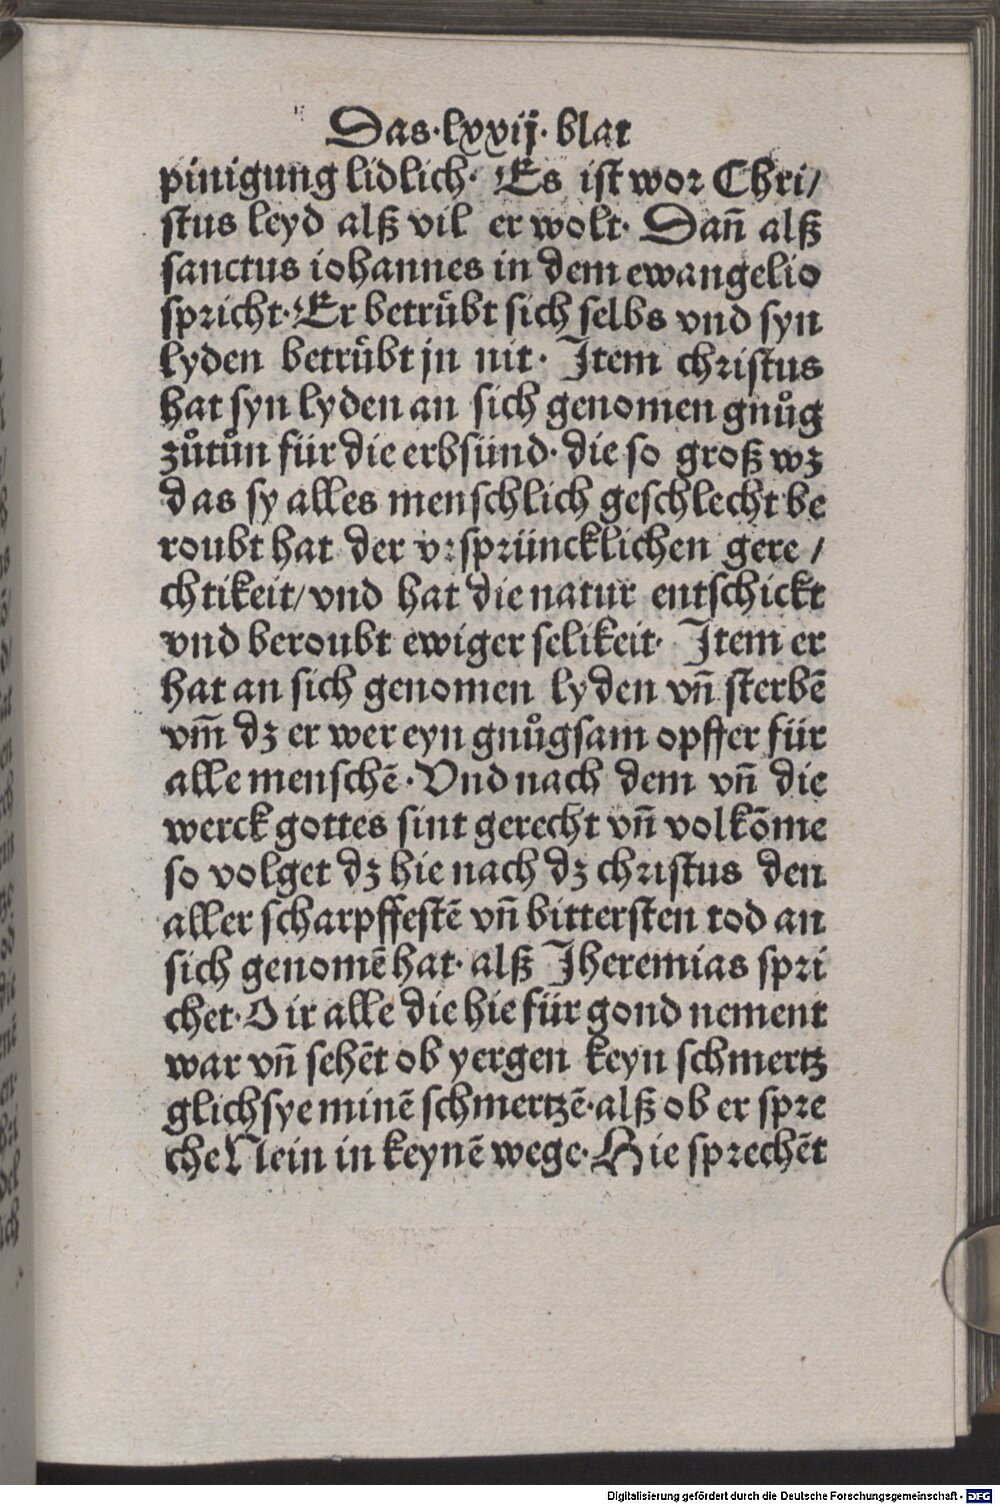 Das·lxxij·blat
pinigung lidlich· Es ist wor Chri/
stus leyd alß vil er wolt· Dañ alß
sanctus iohannes in dem ewangelio
spricht·Er betruͤbt sich selbs vnd syn
lyden betruͤbt jn nit· Item christus
hat syn lyden an sich genomen gnuͦg
zuͦtuͦn für die erbsünd·die so groß wz
das sy alles menschlich geschlecht be
roubt hat der vrsprüncklichen gere/
chtikeit/vnd hat die natur entschickt
vnd beroubt ewiger selikeit· Item er
hat an sich genomen lyden vñ sterbẽ
vm̃ dz er wer eyn gnuͦgsam opffer für
alle menschẽ·Vnd nach dem vñ die
werck gottes sint gerecht vñ volkõme
so volget dz hie nach dz christus den
aller scharpffestẽ vñ bittersten tod an
sich genomẽ hat·alß Jheremias spri
chet·O ir alle die hie für gond nement
war vñ sehẽt ob yergen keyn schmertz
glich sye minẽ schmertzẽ·alß ob er spre
che Nein in keynẽ wege·Hie sprechẽt
Digitalisierung gefördert durch die Deutsche Forschungsgemeinschaft - DFG